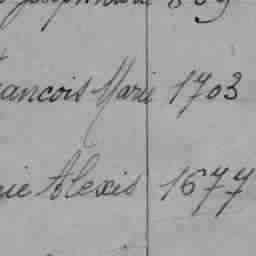 ancois Marie 1703
ie Alexis 1677